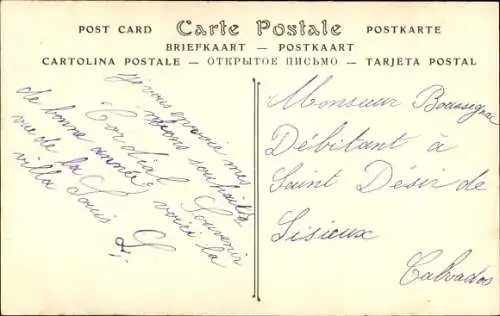 POST CARD Carte Postale POSTKARTE
BRIEFKAART — POSTKAART
CARTOLINA POSTALE — ОТКРЫТОЕ ПИСЬМО — TARJETA POSTAL
je vous envoie mes
souhaits
de bonne année voici la
vue de la
villa Louis
Cordial Souvenir
Monsieur Boussignac
Débitant à
Saint Désir de
Lisieux
Calvados